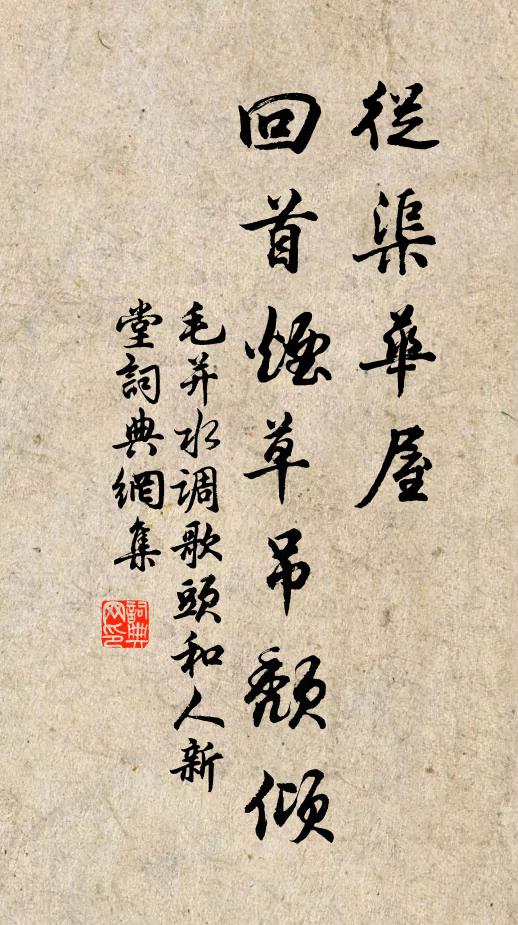 從渠華屋
回首煙草吊頹傾
毛并水调歌頭和人新
堂詞典網集
詞典网印